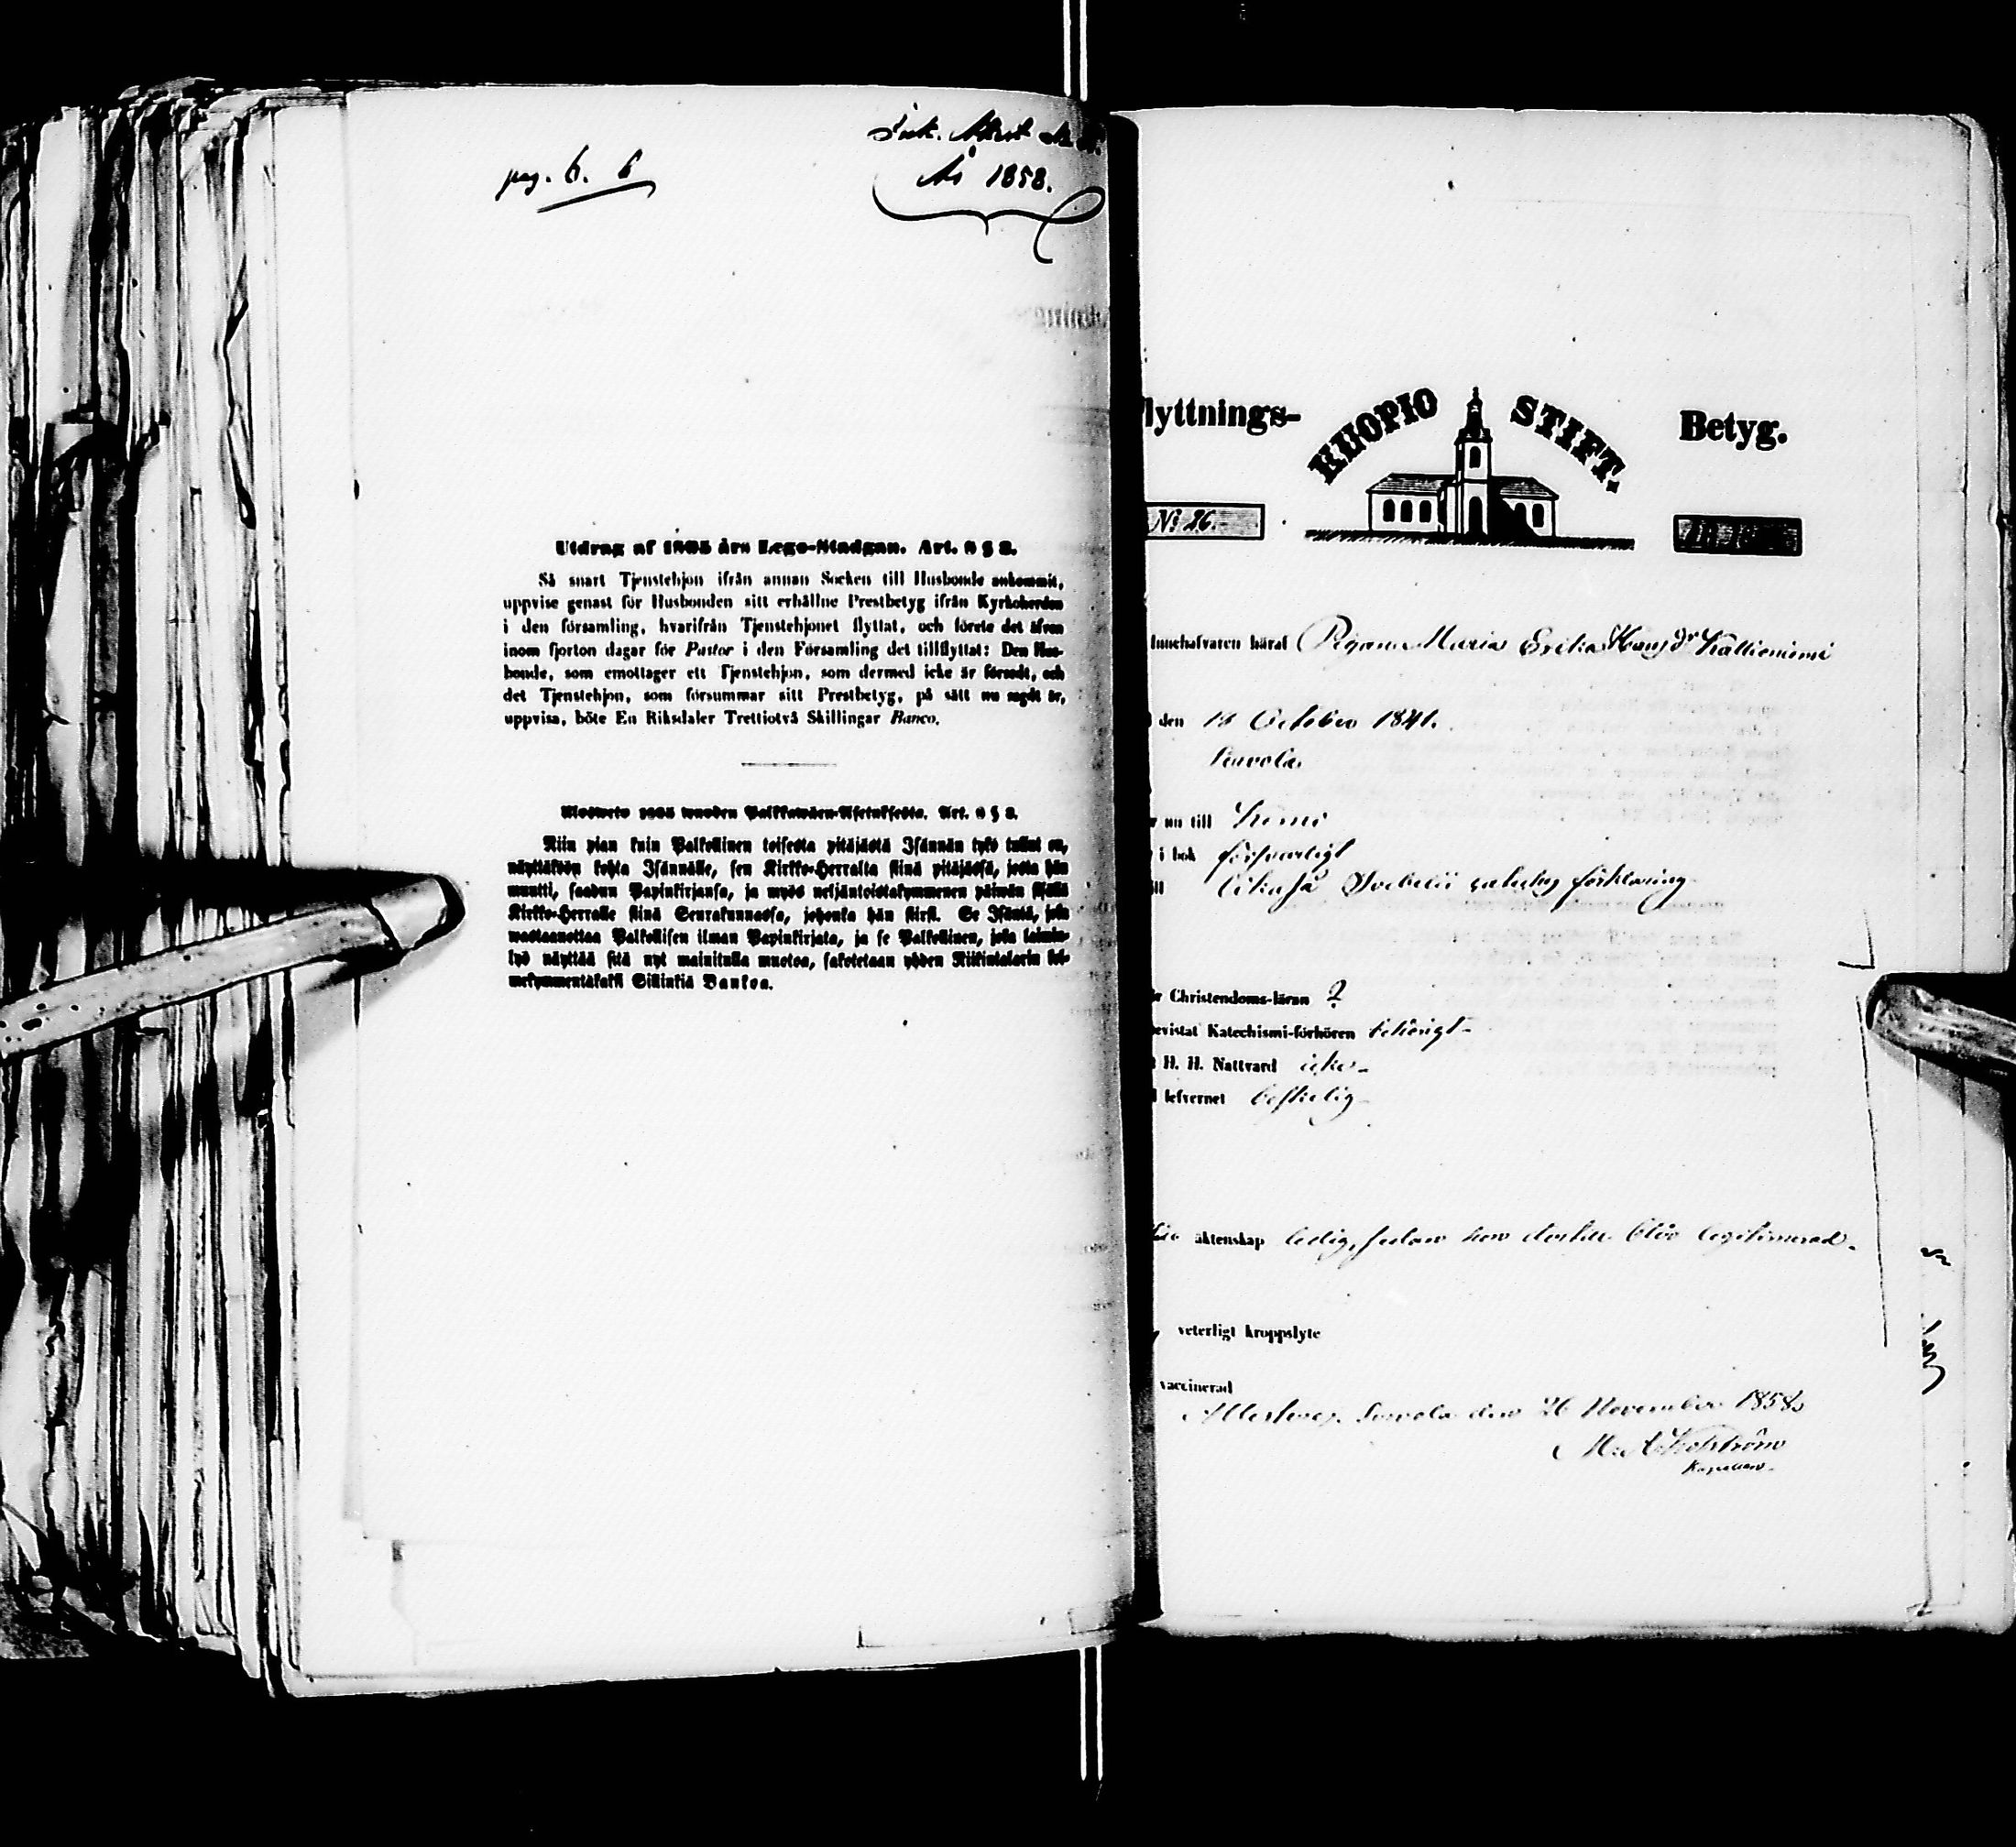 pag. 6. 6
År 1858.
Utdrag af 1805 års Lego-Stadgan. Art. 6 § 8.
Så snart Tjenstehjon ifrån annan Socken till Husbonde ankommit,
uppvise genast för Husbonden sitt erhållne Prestbetyg ifrån Kyrkoherden
i den församling, hvarifrån Tjenstehjonet flyttat, och förete det äfven
inom fjorton dagar för Pastor i den Församling det tillflyttat: Den Hus-
bonde, som emottager ett Tjenstehjon, som dermed icke är försedt, och
det Tjenstehjon, som försummar sitt Prestbetyg, på sätt nu sagdt är,
uppvisa, böte En Riksdaler Trettiotvå Skillingar Banco.
1805 wuoden Palkkawäen-Asetuksesta. Art. 6 § 8.
Niin pian kuin Palkollinen toisesta pitäjästä Isännän tykö tullut on,
näyttäköön kohta Isännälle, sen Kirkko-Herralta siinä pitäjässä, josta hän
muutti, saadun Papinkirjansa, ja myös neljäntoistakymmenen päiwän sisällä
Kirkko-Herralle siinä Seurakunnassa, johonka hän siirsi. Se Isäntä, joka
wastaanottaa Palkollisen ilman Papinkirjata, ja se Palkollinen, joka laimin-
lyö näyttää sitä nyt mainitulla muotoa, sakotetaan yhden Riikintalarin kol-
mekymmentäkaksi Sillinkiä Bankoa.
lyttnings- KUOPIO STIFT. Betyg.
No 26.
Innehafvaren häraf Pigan Maria Erika Hansdr Kallioniemi
den 18 October 1841.
Simola
nu till Kemi
i bok försvarligt
likaså Svebelii förklaring
Christendoms-läran 2
bevistat Katechismi-förhören behörigt
H. H. Nattvard icke
lefvernet beskedlig
äktenskap ledig, sedan hon blir legitimerad.
veterligt kroppslyte
vaccinerad
den 26 November 1858.
Kapellan.